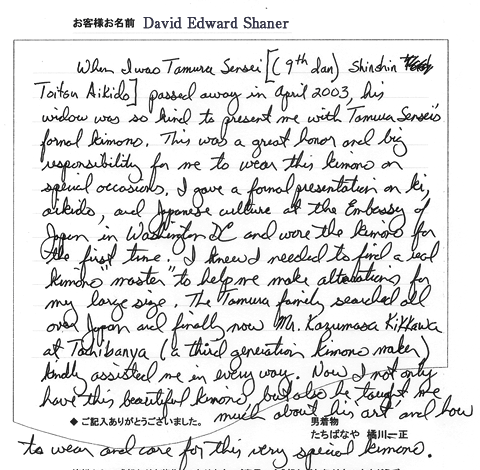 お客様お名前 David Edward Shaner
When I was Tamura Sensei [(9th dan) Shinshin
Toitsu Aikido] passed away in April 2003, his
widow was so kind to present me with Tamura Sensei's
formal kimono. This was a great honor and big
responsibility for me to wear this kimono on
special occasions. I gave a formal presentation on ki,
aikido, and Japanese culture at the Embassy of
Japan in Washington DC and wore the kimono for
the first time. I knew I needed to find a real
kimono "master" to help me make alterations for
my large size. The Tamura family searched all
over Japan and finally now Mr. Kazumasa Kikkawa
at Tachibanya (a third generation kimono maker)
kindly assisted me in every way. Now I not only
have this beautiful kimono, but also he taught me
much about his art and how
◆ ご記入ありがとうございました。 男着物
たちばなや 橘川一正
to wear and care for this very special kimono.